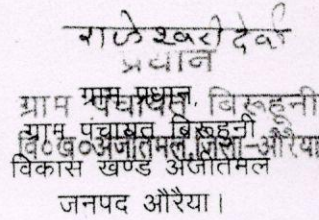 राजेश्वरी देवी
प्रधान
ग्राम प्रधान,
ग्राम पंचायत बिरूहूनी
ग्राम पंचायत बिरूहूनी
वि०ख०अजीतमल,जिला-औरैया
विकास खण्ड अजीतमल
जनपद औरैया।